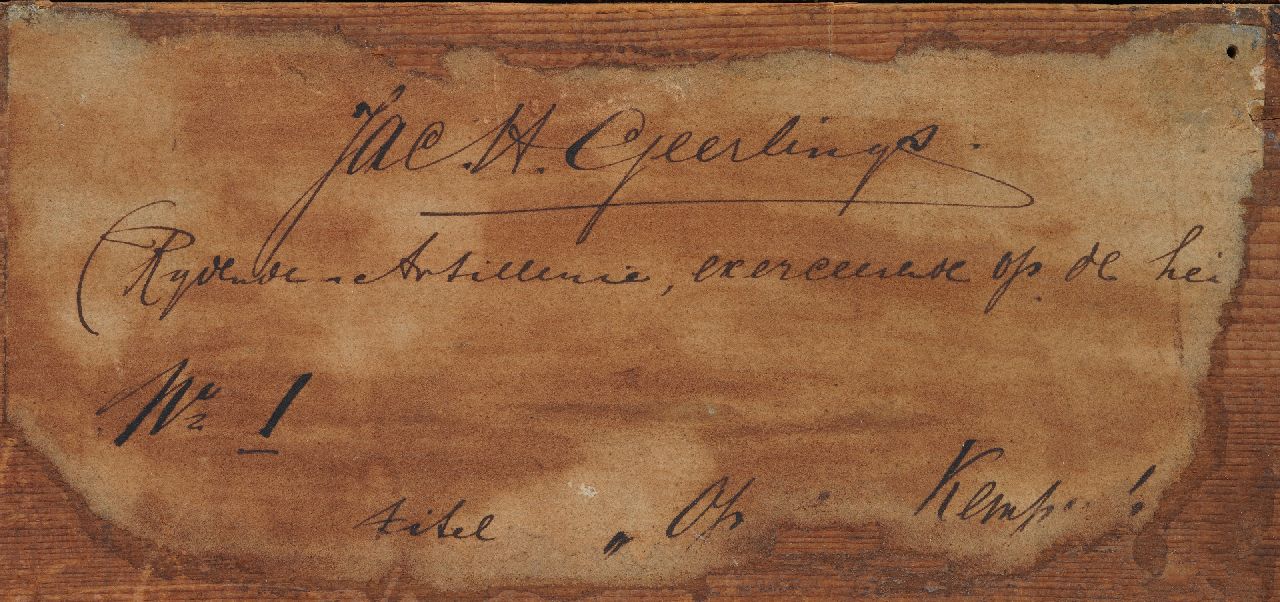 Jac. H. Geerlings.
(Rydende Artillerie, exerceerende op de hei
No 1
titel „Op